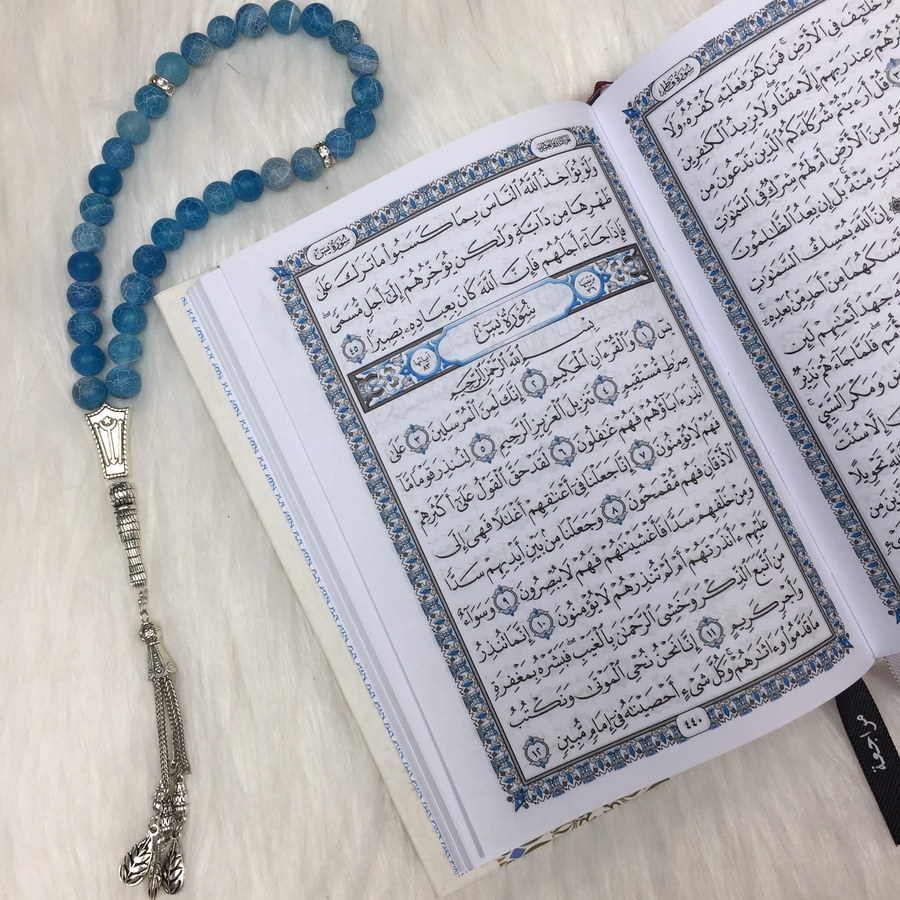 سُورَةُ فَاطِرٍ
خَلَٰٓئِفَ فِى ٱلْأَرْضِ فَمَن كَفَرَ فَعَلَيْهِ كُفْرُهُۥ وَلَا
عِندَ رَبِّهِمْ إِلَّا مَقْتًا وَلَا يَزِيدُ ٱلْكَٰفِرِينَ
قُلْ أَرَءَيْتُمْ شُرَكَآءَكُمُ ٱلَّذِينَ تَدْعُونَ مِن
مِنَ ٱلْأَرْضِ أَمْ لَهُمْ شِرْكٌ فِى ٱلسَّمَٰوَٰتِ
مِّنْهُ بَلْ إِن يَعِدُ ٱلظَّٰلِمُونَ
إِنَّ ٱللَّهَ يُمْسِكُ ٱلسَّمَٰوَٰتِ
مِنْ أَحَدٍ مِّنۢ بَعْدِهِۦٓ
جَهْدَ أَيْمَٰنِهِمْ لَئِن
فَلَمَّا جَآءَهُمْ نَذِيرٌ
وَمَكْرَ ٱلسَّيِّئِ
إِلَّا سُنَّتَ
تَحْوِيلًا
سُورَةُ يسٓ
وَلَوْ يُؤَاخِذُ ٱللَّهُ ٱلنَّاسَ بِمَا كَسَبُوا۟ مَا تَرَكَ عَلَىٰ
ظَهْرِهَا مِن دَآبَّةٍ وَلَٰكِن يُؤَخِّرُهُمْ إِلَىٰٓ أَجَلٍ مُّسَمًّى ۖ
فَإِذَا جَآءَ أَجَلُهُمْ فَإِنَّ ٱللَّهَ كَانَ بِعِبَادِهِۦ بَصِيرًۢا ٤٥
سُورَةُ يسٓ
بِسْمِ ٱللَّهِ ٱلرَّحْمَٰنِ ٱلرَّحِيمِ
يسٓ ١ وَٱلْقُرْءَانِ ٱلْحَكِيمِ ٢ إِنَّكَ لَمِنَ ٱلْمُرْسَلِينَ ٣ عَلَىٰ
صِرَٰطٍ مُّسْتَقِيمٍ ٤ تَنزِيلَ ٱلْعَزِيزِ ٱلرَّحِيمِ ٥ لِتُنذِرَ قَوْمًا مَّآ
أُنذِرَ ءَابَآؤُهُمْ فَهُمْ غَٰفِلُونَ ٦ لَقَدْ حَقَّ ٱلْقَوْلُ عَلَىٰٓ أَكْثَرِهِمْ
فَهُمْ لَا يُؤْمِنُونَ ٧ إِنَّا جَعَلْنَا فِىٓ أَعْنَٰقِهِمْ أَغْلَٰلًا فَهِىَ إِلَى
ٱلْأَذْقَانِ فَهُم مُّقْمَحُونَ ٨ وَجَعَلْنَا مِنۢ بَيْنِ أَيْدِيهِمْ سَدًّا
وَمِنْ خَلْفِهِمْ سَدًّا فَأَغْشَيْنَٰهُمْ فَهُمْ لَا يُبْصِرُونَ ٩ وَسَوَآءٌ
عَلَيْهِمْ ءَأَنذَرْتَهُمْ أَمْ لَمْ تُنذِرْهُمْ لَا يُؤْمِنُونَ ١٠ إِنَّمَا تُنذِرُ
مَنِ ٱتَّبَعَ ٱلذِّكْرَ وَخَشِىَ ٱلرَّحْمَٰنَ بِٱلْغَيْبِ ۖ فَبَشِّرْهُ بِمَغْفِرَةٍ
وَأَجْرٍ كَرِيمٍ ١١ إِنَّا نَحْنُ نُحْىِ ٱلْمَوْتَىٰ وَنَكْتُبُ
مَا قَدَّمُوا۟ وَءَاثَٰرَهُمْ ۚ وَكُلَّ شَىْءٍ أَحْصَيْنَٰهُ فِىٓ إِمَامٍ مُّبِينٍ ١٢
٤٤٠
مراجعة